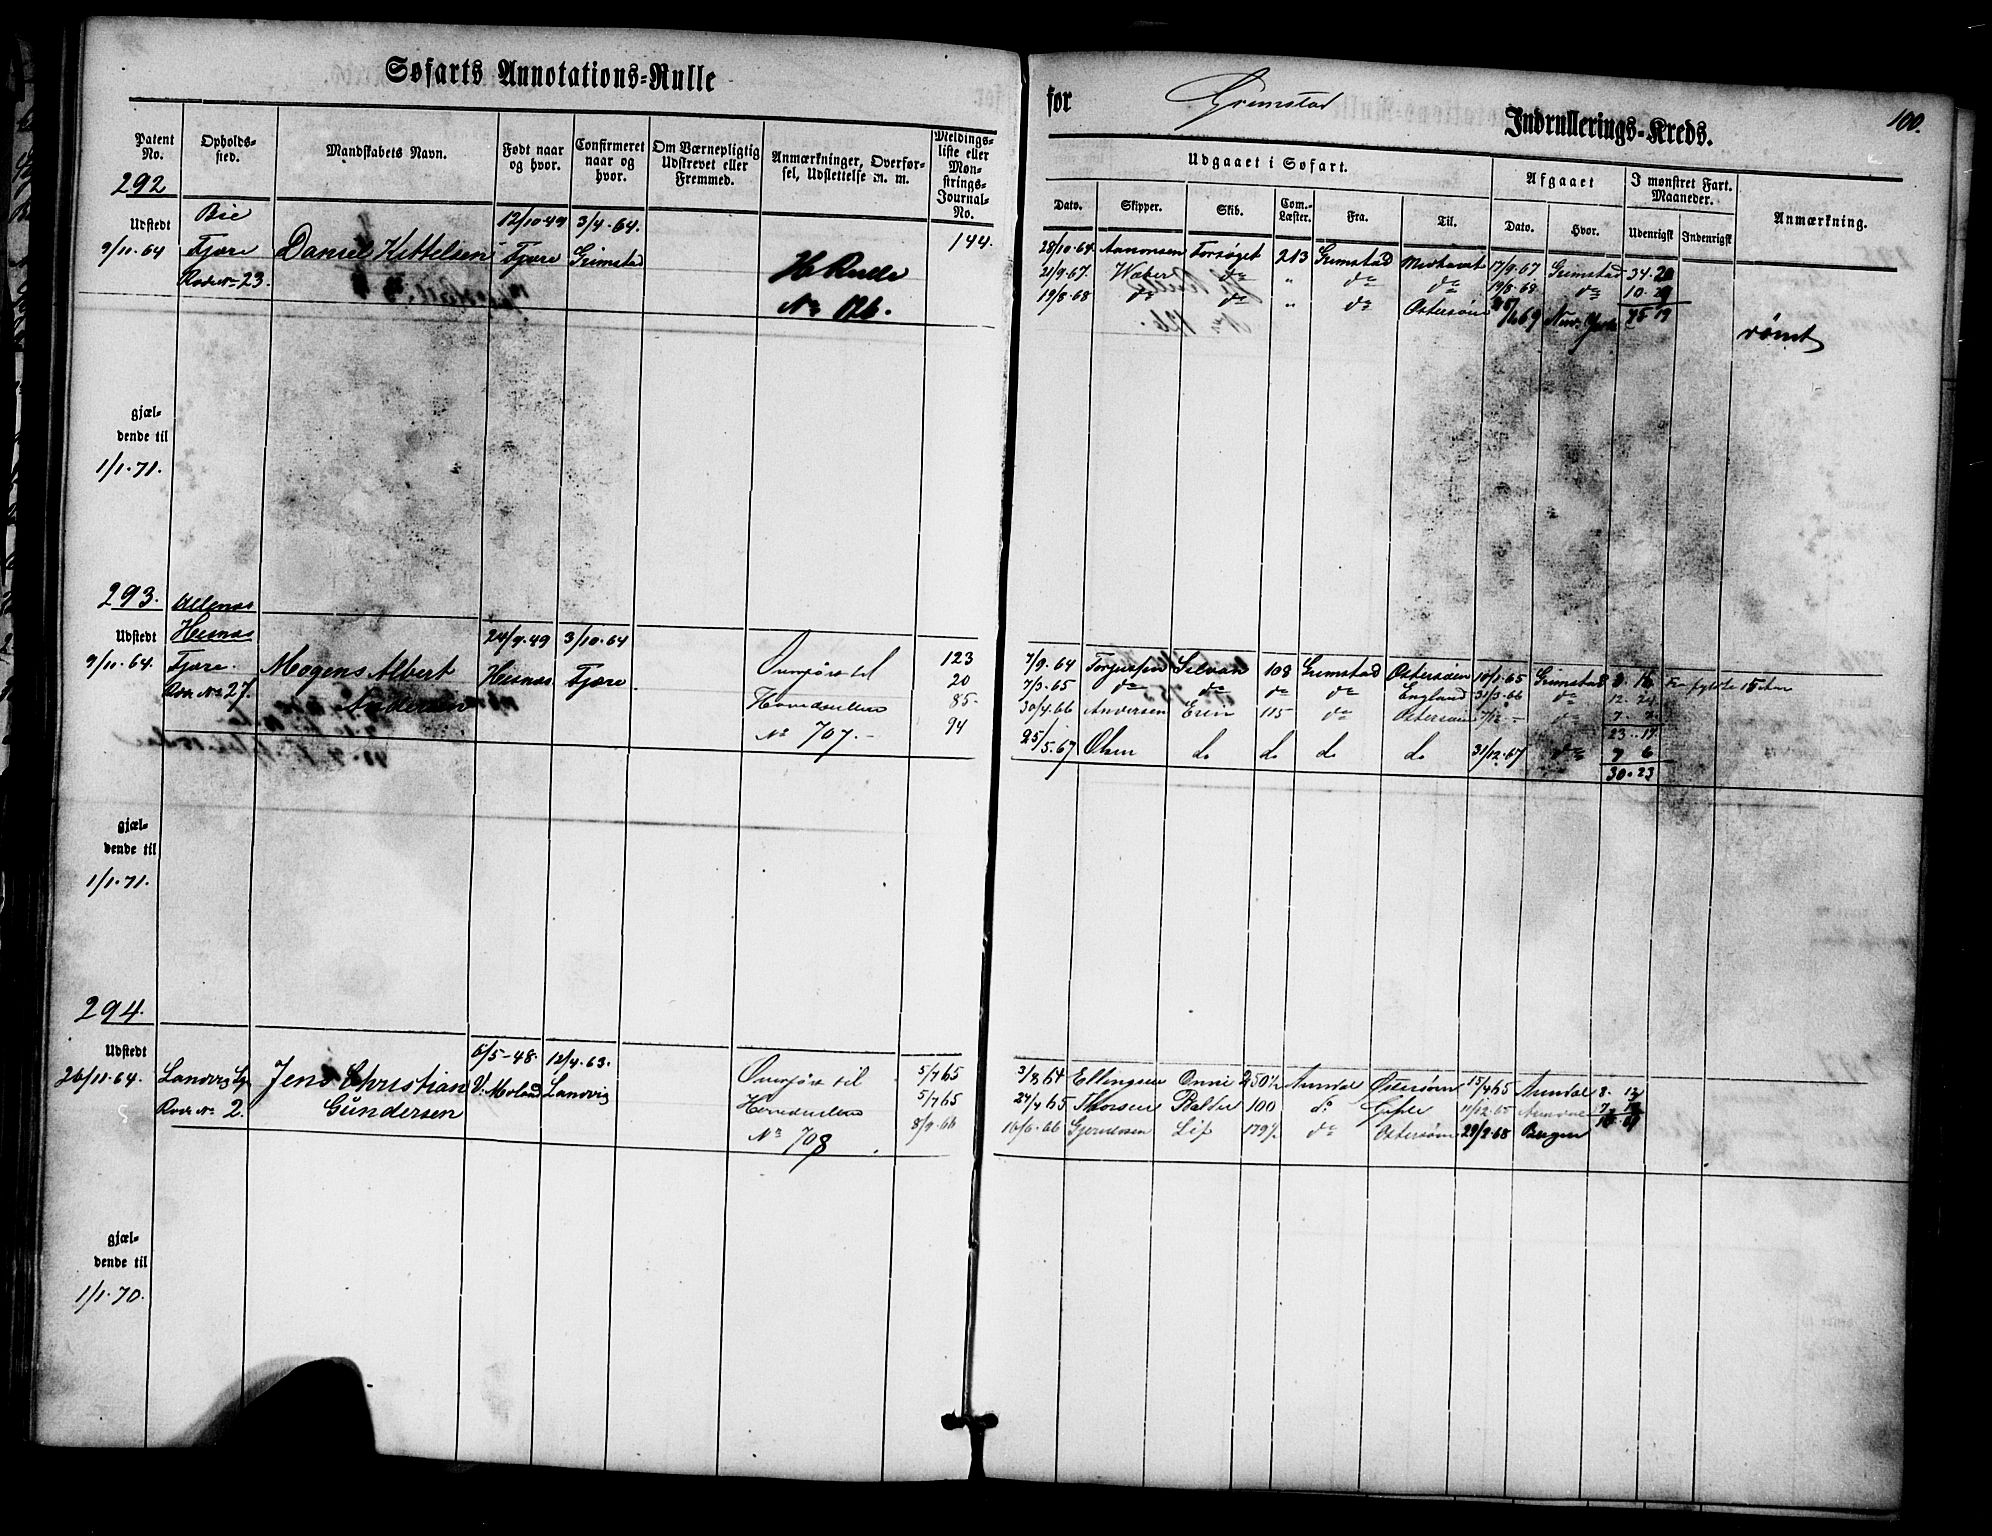 Søfarts Annotations-Rulle
for Grimstad Indrullerings-Kreds.
100.
Patent No.
Opholds-sted.
Mandskabets Navn.
Født naar og hvor.
Confirmeret naar og hvor.
Om Værnepligtig Udskrevet eller Fremmed.
Anmærkninger, Overførsel, Udslettelse m. m.
Meldings-liste eller Mønstrings-Journal-No.
Udgaaet i Søfart.
Afgaaet
I mønstret Fart. Maaneder.
Anmærkning.
Dato. Skipper. Skib. Com.-Læster. Fra. Til. Dato. Hvor. Udenrigsk Indenrigsk
292
Udstedt
9/11 64
Bie
Fjære
Rode No 23.
Daniel Kittelsen
12/10 49
Fjære
3/4.64.
Grimstad
H Rulle
No 126.
144.
28/10.64. Aanonsen Forsøget 213 Grimstad 17/9.67 Grimstad 34.20
21/9.67. Weber do " do do 19/8.68 do
19/8.68 do do " do Østersøen New York 45 19
rømt
gjæl-
dende til
1/1.71.
293.
Udstedt
9/11.64.
Hesnæs
Fjære.
Rode No 27.
Mogens Albert
Andersen
24/9.49
Hesnæs
3/10.64
Fjære
Overført til
Hovedrullen
No 707.
123
20
85
94
7/9.64 108 Grimstad Østersøen 10/1.65 Grimstad
7/3.65 do do do do England 31/3.66 do 12.24
30/4.66 Andersen 115 do Østersøen 7/12 - do
25/5.67 Olsen do do do do 31/12.67 do 7 6
30.23
gjæl-
dende til
1/1.71.
294.
Udstedt
26/11.64.
Landvig
Rode No 2.
Jens Christian
Gundersen
6/5-48.
V. Moland
12/4.63.
Landvig
Overført til
Hovedrullen
No 708
5/4 65
5/4 65
8/9.66
3/8 64 Ellingsen 250½ Arendal Østersøen 15/4 65 Arendal
24/4 65 Thorsen Balder 100 do Gefle 11/12.65 Arendal
16/6.66 179½ do Østersøen Bergen
gjæl-
dende til
1/1.70.